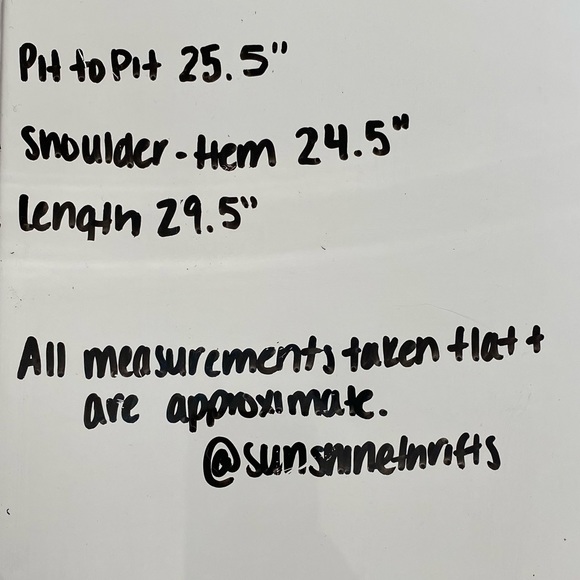 Pit to Pit 25.5"
Shoulder-Hem 24.5"
Length 29.5"
All measurements taken flat +
are approximate.
@sunshinethrifts